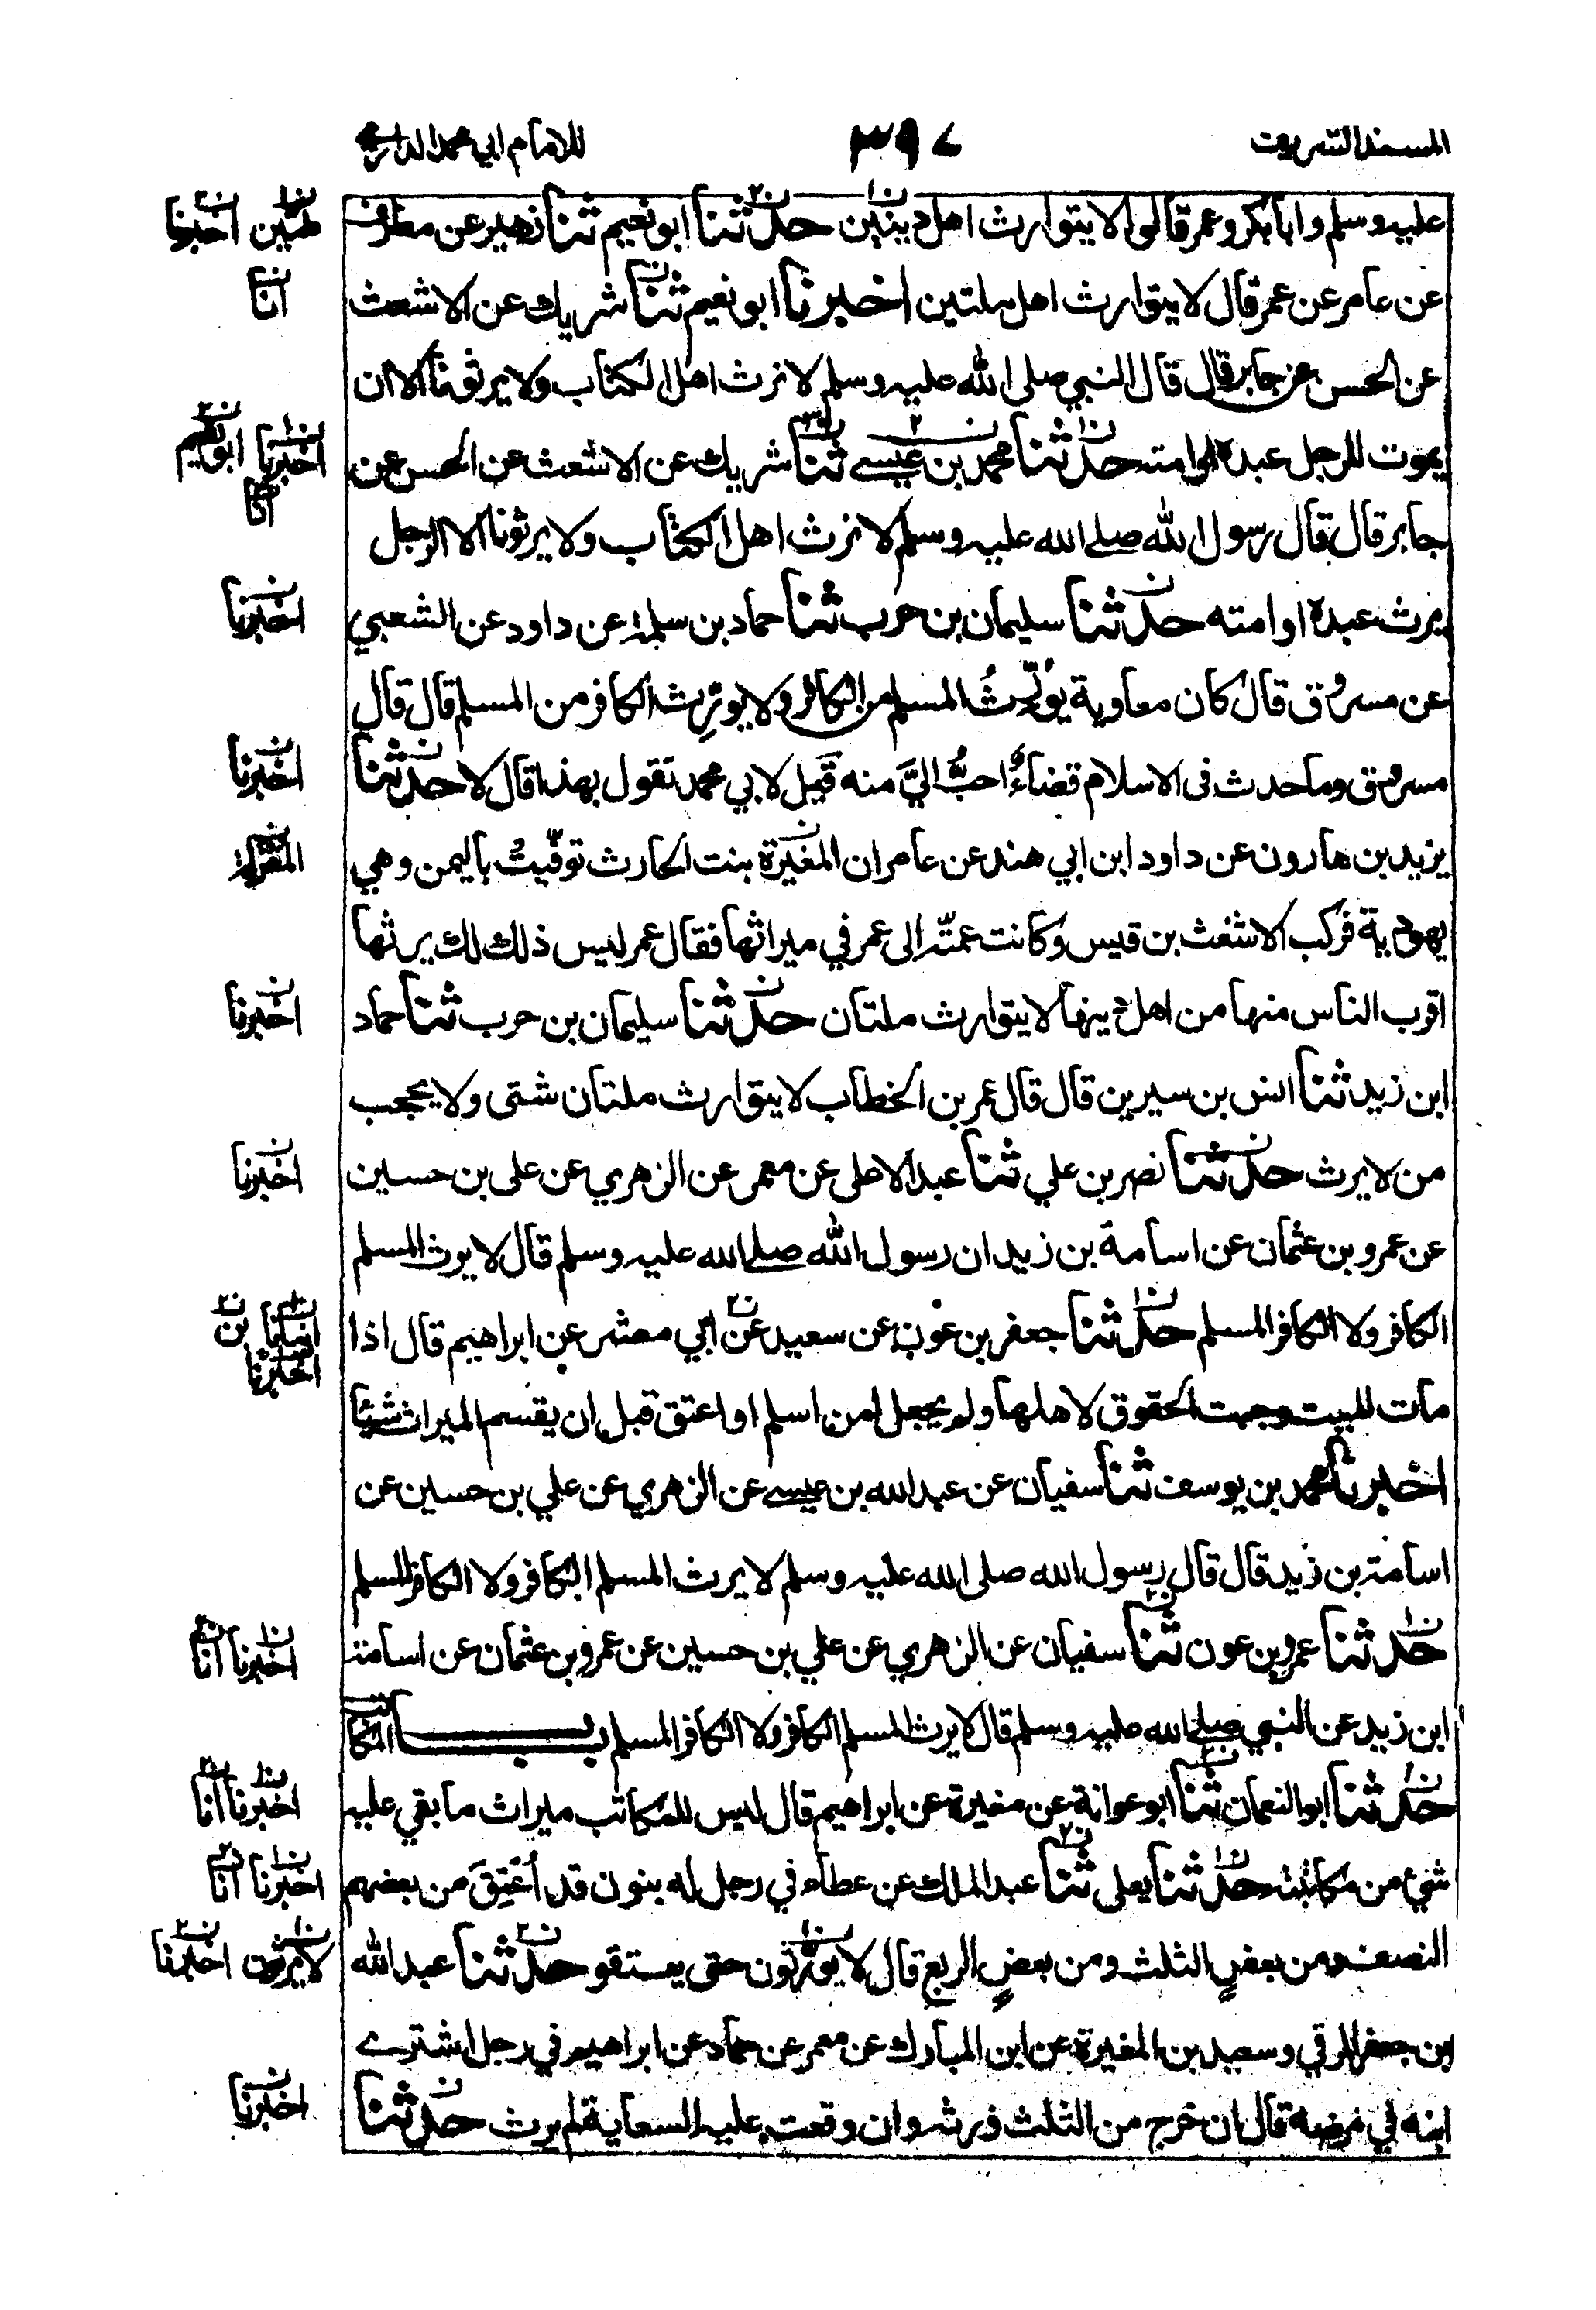 المسند الشريف ٣٩٧ للامام ابي محمد الدارمي
عليه وسلم وابا بكر وعمر قالوا لا يتوارث اهل دينين حدثنا ابو نعيم ثنا زهير عن مطرف
عن عامر عن عمر قال لا يتوارث اهل ملتين اخبرنا ابو نعيم ثنا شريك عن الاشعث
عن الحسن عن جابر قال قال النبي صلى الله عليه وسلم لا نرث اهل الكتاب ولا يرثونا الا ان
يموت للرجل عبده او امته حدثنا محمد بن عيسے ثنا شريك عن الاشعث عن الحسن عن
جابر قال قال رسول الله صلے الله عليه وسلم لا نرث اهل الكتاب ولا يرثونا الا الرجل
يرث عبده او امته حدثنا سليمان بن حرب ثنا حماد بن سلمة عن داود عن الشعبي
عن مسروق قال كان معاوية يُورّثُ المسلم من الكافر ولا يورِث الكافر من المسلم قال قال
مسروق وما حدث فى الاسلام قضاءٌ احبُّ اليَّ منه قيل لابي محمد تقول بهذا قال لا حدثنا
يزيد بن هارون عن داود ابن ابي هند عن عامر ان المغيرة بنت الحارث توفّيتْ باليمن وهي
يهودية فركب الاشعث بن قيس وكانت عمتّه الى عمر في ميراثها فقال عمر ليس ذلك لك يرثها
اقرب الناس منها من اهل دينها لا يتوارث ملتان حدثنا سليمان بن حرب ثنا حماد
ابن زيد ثنا انس بن سيرين قال قال عمر بن الخطاب لا يتوارث ملتان شتى ولا يحجب
من لا يرث حدثنا نصر بن علي ثنا عبد الاعلى عن معمر عن الزهري عن على بن حسين
عن عمرو بن عثمان عن اسامة بن زيد ان رسول الله صلے الله عليه وسلم قال لا يرث المسلم
الكافر ولا الكافر المسلم حدثنا جعفر بن عون عن سعيد عن ابي معشر عن ابراهيم قال اذا
مات الميت وجبت الحقوق لاهلها ولم يجعل لمن اسلم او اعتق قبل ان يقسم الميراث شيئا
اخبرنا محمد بن يوسف ثنا سفيان عن عبد الله بن عيسے عن الزهري عن علي بن حسين عن
اسامة بن زيد قال قال رسول الله صلى الله عليه وسلم لا يرث المسلم الكافر ولا الكافر المسلم
حدثنا عمرو بن عون ثنا سفيان عن الزهري عن علي بن حسين عن عمرو بن عثمان عن اسامة
ابن زيد عن النبي صلے الله عليه وسلم قال لا يرث المسلم الكافر ولا الكافر المسلم باب المكاتب
حدثنا ابو النعمان ثنا ابو عوانة عن مغيرة عن ابراهيم قال ليس للمكاتب ميراث ما بقي عليه
شئ من مكاتبته حدثنا يعلى ثنا عبد الملك عن عطاء في رجل له بنون قد اُعْتِقَ من بعضهم
النصف ومن بعضٍ الثلث ومن بعضٍ الربع قال لا يورّثون حتى يعتقو حدثنا عبد الله
ابن جعفر الرقي وسعيد بن المغيرة عن ابن المبارك عن معمر عن حماد عن ابراهيم في رجل اشترے
ابنه في مرضه قال ان خرج من الثلث ورثه وان وقعت عليه السعاية لم يرث حدثنا
ملتين اخبرنا
انا
اخبرنا ابو نعيم
انا
اخبرنا
اخبرنا
اخبرنا
اخبرنا
بن
اخبرنا
اخبرنا انا
اخبرنا انا
اخبرنا انا
لا يرثون اخبرنا
اخبرنا